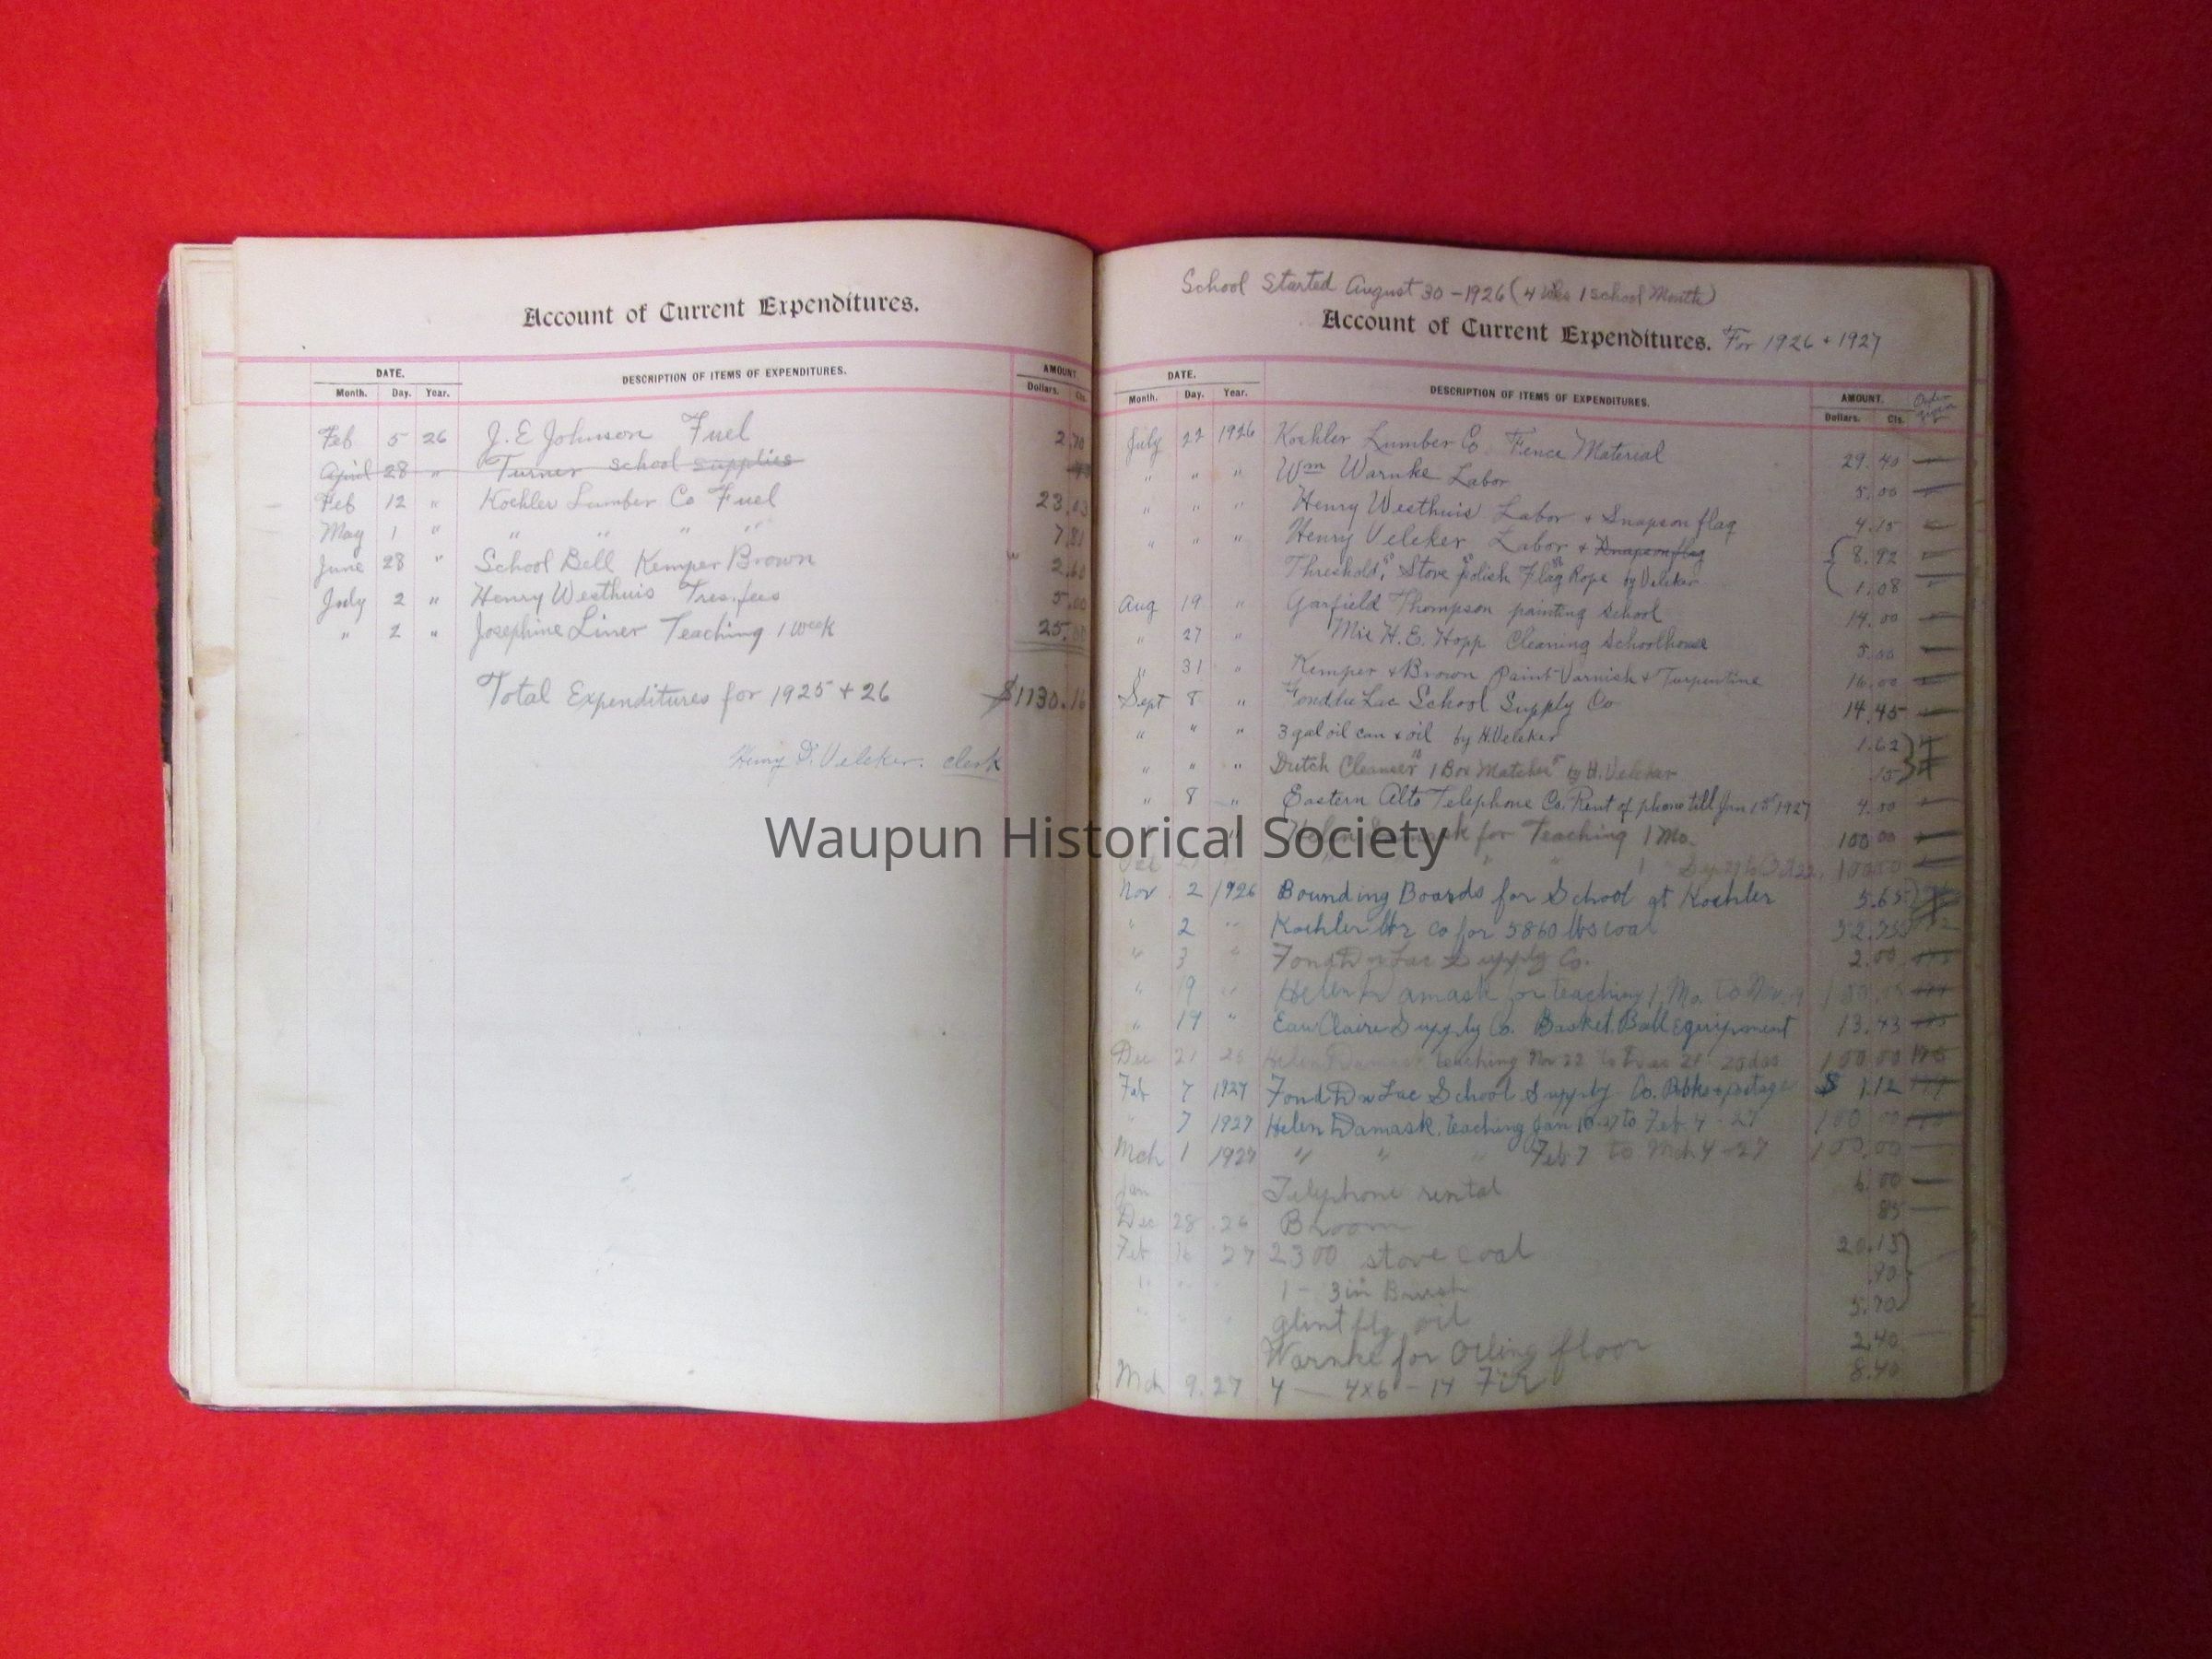 Account of Current Expenditures.
DATE. DESCRIPTION OF ITEMS OF EXPENDITURES. AMOUNT
Month. Day. Year. Dollars. Cts.
Feb 5 26 J. E Johnson Fuel 2.70
April 28 " Turner school supplies
Feb 12 " Koehler Lumber Co Fuel 23.03
May 1 " " " " " 7.81
June 28 " School Bell Kemper Brown 2.60
July 2 " Henry Westhuis Tres. fees 5.00
" 2 " Josephine Liner Teaching 1 week 25.00
Total Expenditures for 1925 + 26 $1130.16
Henry D. Veleker. clerk
School Started August 30 - 1926 (4 wks 1 school Month)
Account of Current Expenditures. For 1926 + 1927
DATE. DESCRIPTION OF ITEMS OF EXPENDITURES. AMOUNT. Order given
Month. Day. Year. Dollars. Cts.
July 22 1926 Koehler Lumber Co. Fence Material 29.40
" " " Wm Warnke Labor 5.00
" " " Henry Westhuis Labor + Snaps on flag 4.15
" " " Henry Veleker Labor + Snaps on flag 8.92
Threshold, Stove polish Flag Rope by Veleker 1.08
Aug 19 " Garfield Thompson painting School 14.00
" 27 " Mis H. E. Hopp Cleaning Schoolhouse 5.00
" 31 " Kemper + Brown Paint Varnish + Turpentine 16.00
Sept 8 " Fond du Lac School Supply Co 14.45
" " " 3 gal oil can + oil by H. Veleker 1.62
" " " Dutch Cleanser 1 Box Matches by H. Veleker 15
" 8 " Eastern Alto Telephone Co. Rent of phone till Jan 1st 1927 4.50
" Helen Damask for Teaching 1 Mo. 100 00
Oct 1 100.00
Nov. 2 1926 Bounding Boards for School at Koehler 5.65
" 2 " Koehler lbr Co for 5860 lbs coal
" 3 " Fond Du Lac Supply Co. 2.00
" 19 " Helen Damask for teaching 1 Mo. to Nov. 19 100.00
" 19 " Eau Claire Supply Co. Basket Ball Equipment 13.43
Dec 21 26 Helen Damask teaching Nov 22 to 20 das 100.00
Feb 7 1927 Fond Du Lac School Supply Co. Bks + postage $ 1.12
" 7 1927 Helen Damask. teaching Jan 10.27 to Feb. 4 - 27 100 00
Mch 1 1927 " " " Feb 7 to Mch 4 - 27 100.00
Jan Telephone rental 6.00
Dec 28 .26 Broom 85
Feb 16 27 2300 stove coal 20.13
" " 1 - 3in Brush .90
" " oil 5.70
Warnke for Oiling floor 2.40
Mch 9.27 4 — 4x6 - 14 Fir 8.40
Waupun Historical Society